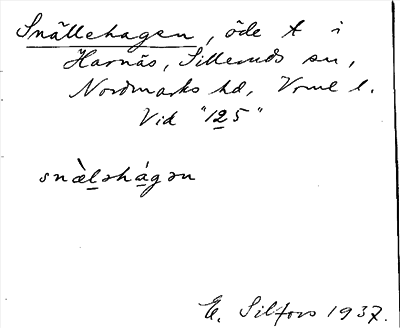 Snällehagen, öde t i
Harnäs, Silleruds sn,
Nordmarks hd, Vrml l.
Vid "125"
snæ̀lǝhágǝn
E. Silfors 1937.